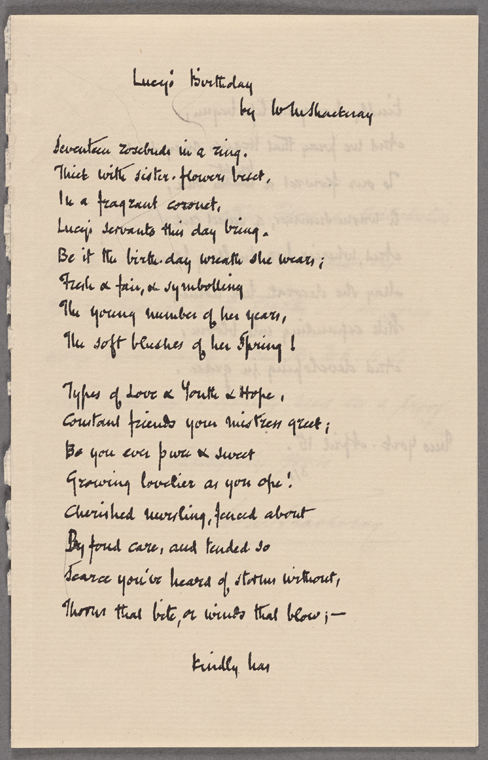 Lucy's Birthday
by W M Thackeray
Seventeen rosebuds in a ring.
Thick with sister-flowers beset,
In a fragrant coronet,
Lucy's servants this day bring.
Be it the birth-day wreath she wears;
Fresh & fair, & symbolling
The young number of her years,
The soft blushes of her Spring!
Types of Love & Youth & Hope,
Constant friends your mistress greet;
Be you ever pure & sweet
Growing lovelier as you ope!
Cherished nursling, fenced about
By fond care, and tended so
Scarce you've heard of storms without,
Thorns that bite, or winds that blow;—
Kindly has